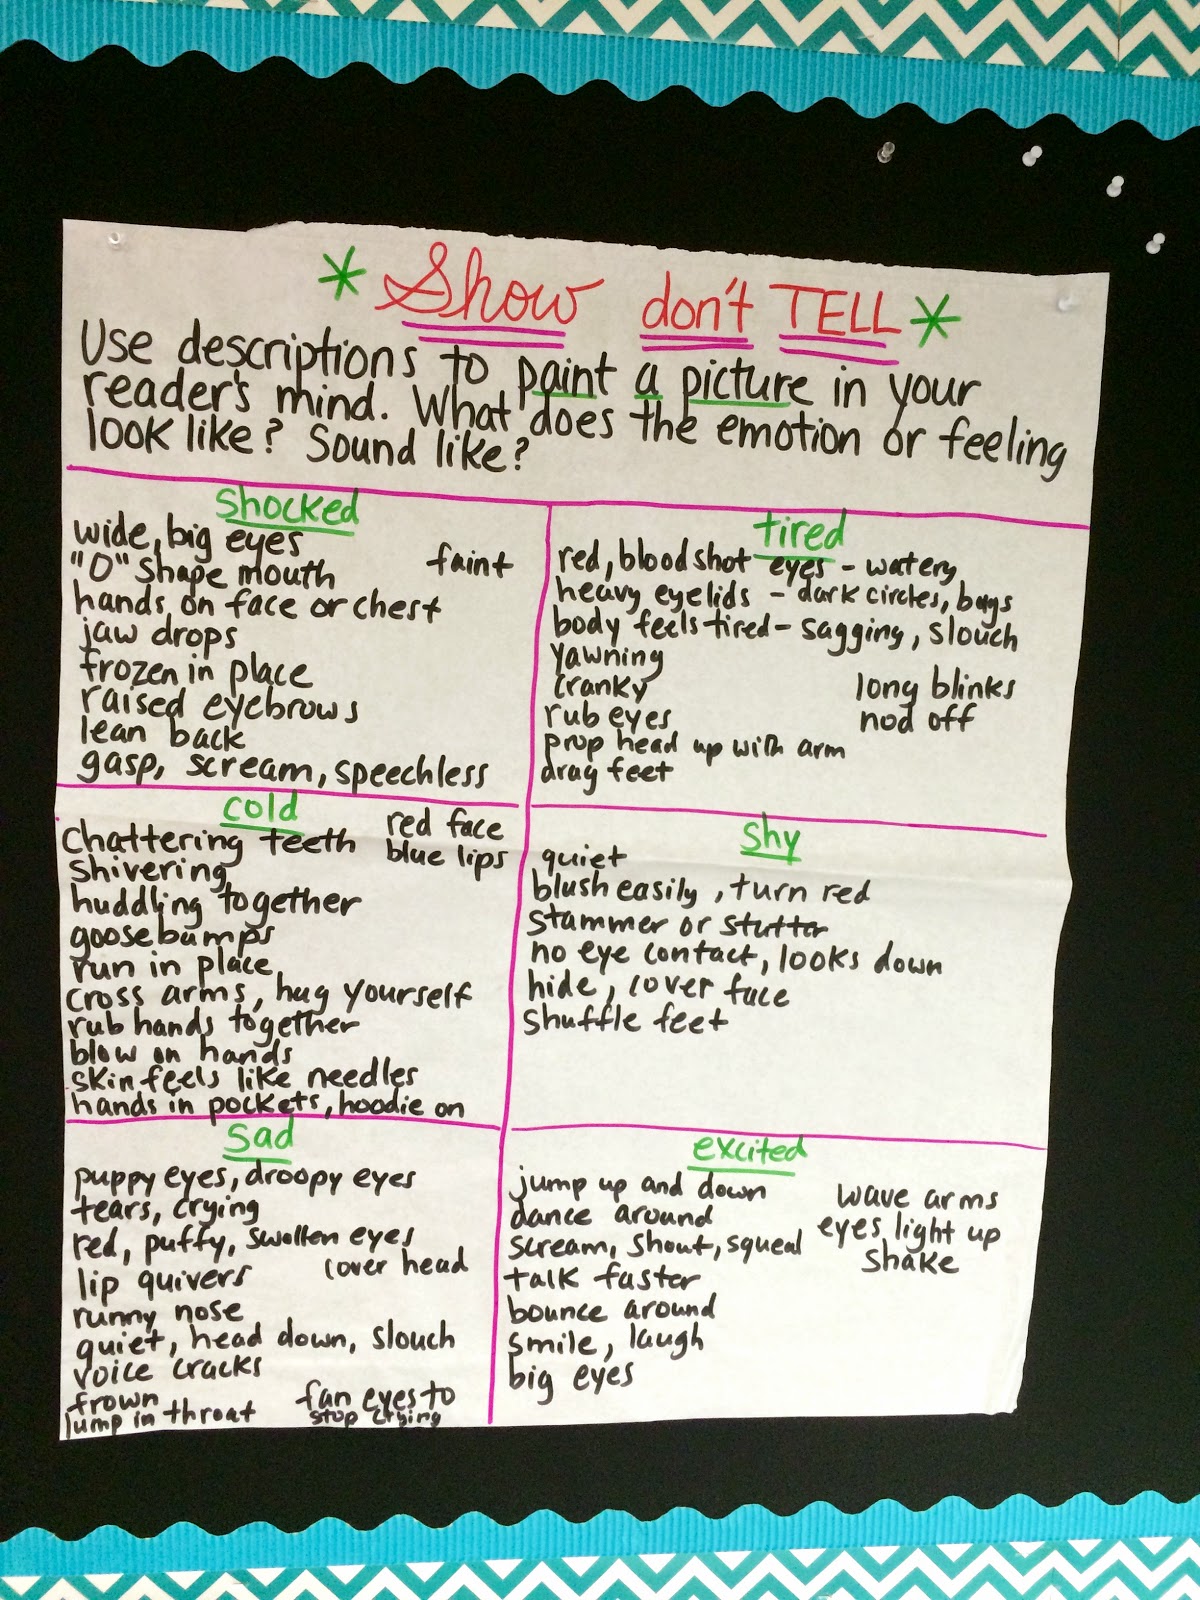 * Show don't TELL *
Use descriptions to paint a picture in your
reader's mind. What does the emotion or feeling
look like? Sound like?
shocked
wide, big eyes
"O" shape mouth
faint
hands on face or chest
jaw drops
frozen in place
raised eyebrows
lean back
gasp, scream, speechless
tired
red, bloodshot eyes - watery
heavy eyelids - dark circles, bags
body feels tired - sagging, slouch
yawning
cranky
rub eyes
prop head up with arm
drag feet
long blinks
nod off
cold
chattering teeth
shivering
huddling together
goosebumps
run in place
cross arms, hug yourself
rub hands together
blow on hands
skin feels like needles
hands in pockets, hoodie on
red face
blue lips
shy
quiet
blush easily, turn red
stammer or stutter
no eye contact, looks down
hide, cover face
shuffle feet
sad
puppy eyes, droopy eyes
tears, crying
red, puffy, swollen eyes
lip quivers
cover head
runny nose
quiet, head down, slouch
voice cracks
frown
lump in throat
fan eyes to
stop crying
excited
jump up and down
dance around
scream, shout, squeal
talk faster
bounce around
smile, laugh
big eyes
wave arms
eyes light up
shake